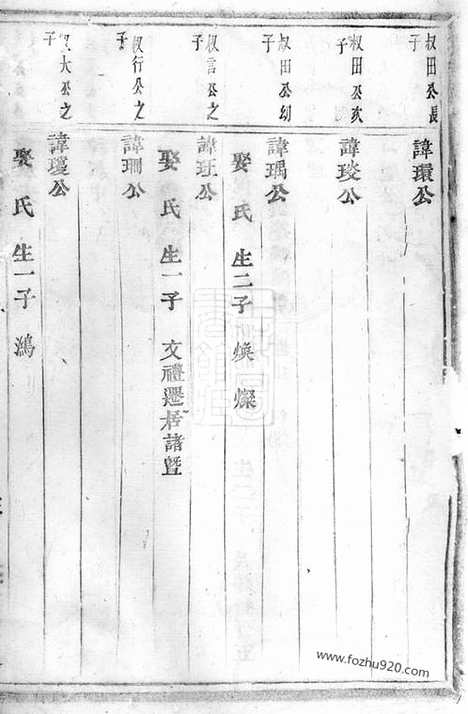 叔田公長子
諱環公
叔田公次子
諱琰公
叔田公幼子
諱瑀公
娶 氏 生二子 煥 燦
叔言公之子
諱玨公
娶 氏 生一子 文禮遷居諸暨
叔行公之子
諱珊公
大公之子
諱瓊公
娶 氏 生一子 鴻
www.fozhu920.com